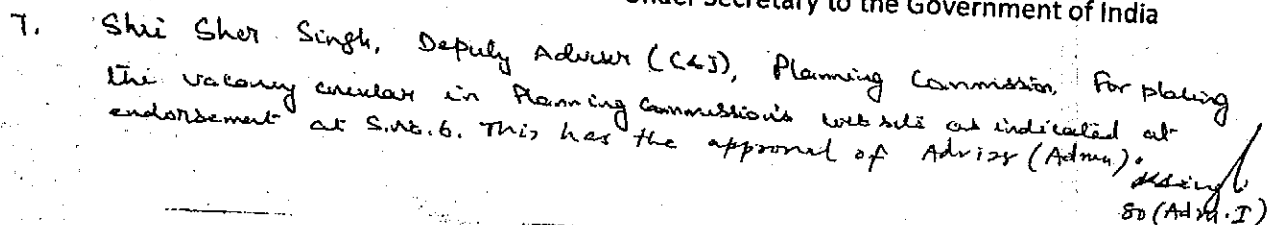 Under Secretary to the Government of India
7. Shri Sher Singh, Deputy Adviser (C&I), Planning Commission, For placing
the vacancy circular in Planning Commission's web site as indicated at
endorsement at S.No.6. This has the approval of Adviser (Admn.).
SO (Admn.I)